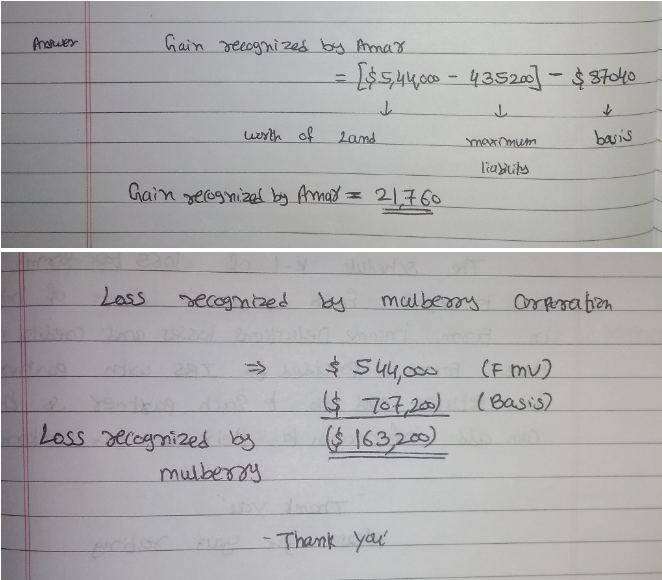 Answer Gain recognized by Amar
= [$5,44,000 - 435200] - $ 87040
↓ ↓ ↓
worth of Land maximum basis
liability
Gain recognized by Amar = 21,760
Loss recognized by mulberry Corporation
⇒ $ 544,000 (F mv)
($ 707,200) (Basis)
Loss recognized by ($ 163,200)
mulberry
- Thank you